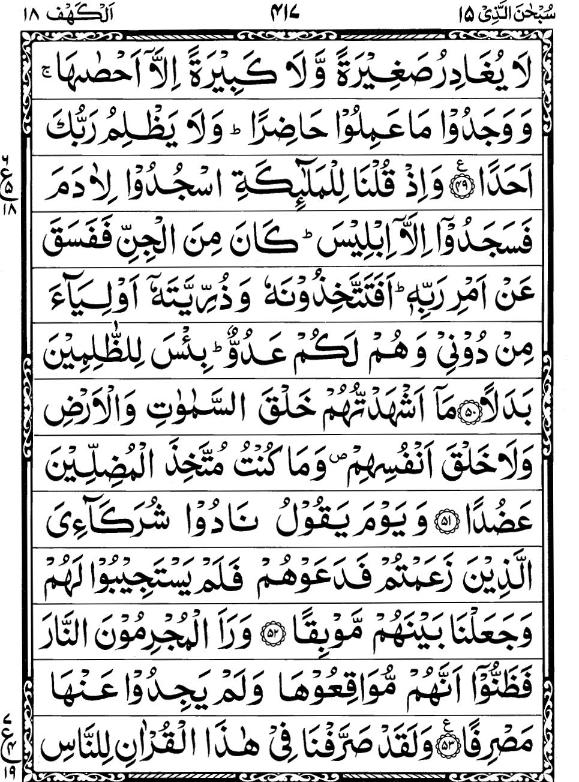 سُبْحٰنَ الَّذِیْ ١٥ ٤١٧ اَلْكَهْف ١٨
لَا یُغَادِرُ صَغِیْرَةً وَّلَا كَبِیْرَةً اِلَّاۤ اَحْصٰىهَا ۚ
وَوَجَدُوْا مَا عَمِلُوْا حَاضِرًا ؕ وَلَا یَظْلِمُ رَبُّكَ
اَحَدًا ﴿٤٩﴾ ع وَاِذْ قُلْنَا لِلْمَلٰٓىِٕكَةِ اسْجُدُوْا لِاٰدَمَ
٦ ع ٥ ١٨
فَسَجَدُوْۤا اِلَّاۤ اِبْلِیْسَ ؕ كَانَ مِنَ الْجِنِّ فَفَسَقَ
عَنْ اَمْرِ رَبِّهٖ ؕ اَفَتَتَّخِذُوْنَهٗ وَذُرِّیَّتَهٗۤ اَوْلِیَآءَ
مِنْ دُوْنِیْ وَهُمْ لَكُمْ عَدُوٌّ ؕ بِئْسَ لِلظّٰلِمِیْنَ
بَدَلًا ﴿٥٠﴾ مَاۤ اَشْهَدْتُّهُمْ خَلْقَ السَّمٰوٰتِ وَالْاَرْضِ
وَلَا خَلْقَ اَنْفُسِهِمْ ۪ وَمَا كُنْتُ مُتَّخِذَ الْمُضِلِّیْنَ
عَضُدًا ﴿٥١﴾ وَیَوْمَ یَقُوْلُ نَادُوْا شُرَكَآءِیَ
الَّذِیْنَ زَعَمْتُمْ فَدَعَوْهُمْ فَلَمْ یَسْتَجِیْبُوْا لَهُمْ
وَجَعَلْنَا بَیْنَهُمْ مَّوْبِقًا ﴿٥٢﴾ وَرَاَ الْمُجْرِمُوْنَ النَّارَ
فَظَنُّوْۤا اَنَّهُمْ مُّوَاقِعُوْهَا وَلَمْ یَجِدُوْا عَنْهَا
مَصْرِفًا ﴿٥٣﴾ ع وَلَقَدْ صَرَّفْنَا فِیْ هٰذَا الْقُرْاٰنِ لِلنَّاسِ
٧ ع ٤ ١٩